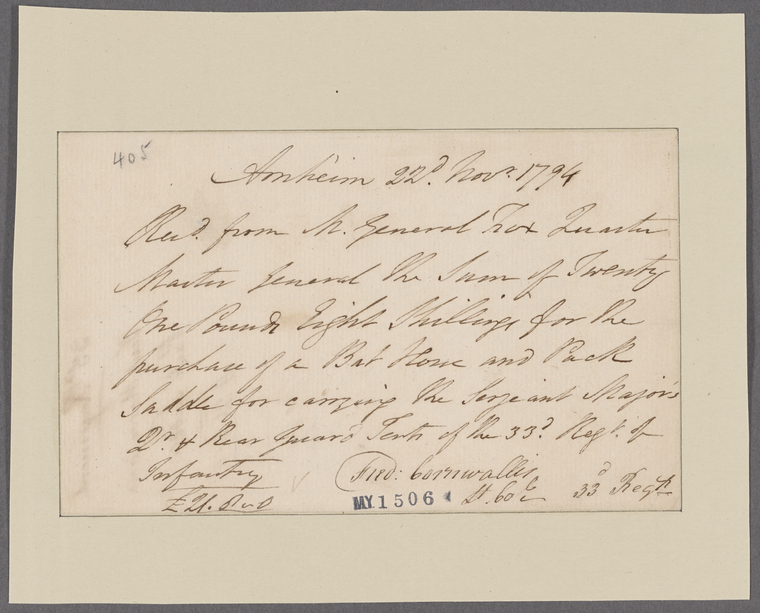 405
Arnheim 22d. Novr. 1794
Recd. from M. General Fox Quarter
Master General the Sum of Twenty
One Pounds Eight Shillings for the
purchase of a Bat Horse and Pack
Saddle for carrying the Serjeant Major's
Qr. & Rear Guard Tents of the 33d. Regt. of
Infantry
£21. 8 " 0
Fred: Cornwallis
MY 1506
Lt. Col 33d Regt